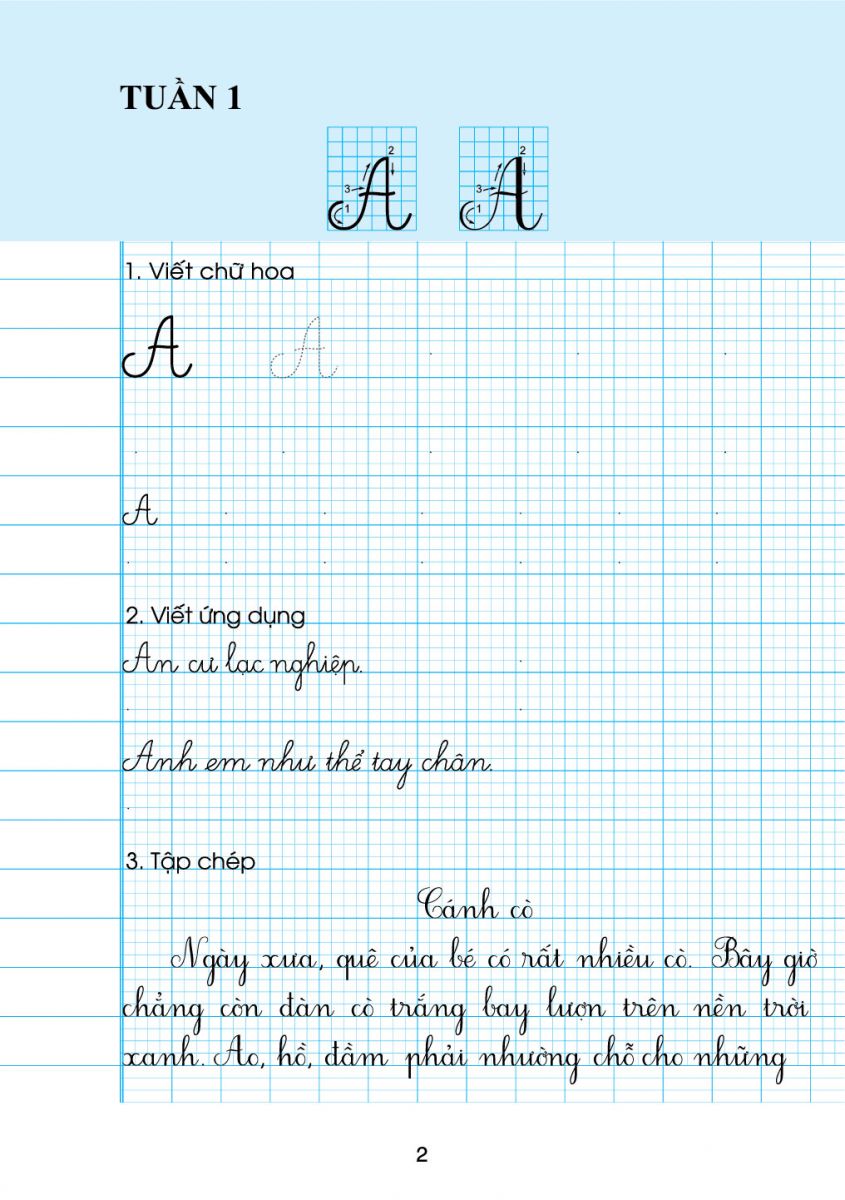 TUẦN 1
2 2
3 3
1 1
A A
1. Viết chữ hoa
A A
A
2. Viết ứng dụng
An cư lạc nghiệp.
Anh em như thể tay chân.
3. Tập chép
Cánh cò
Ngày xưa, quê của bé có rất nhiều cò. Bây giờ
chẳng còn đàn cò trắng bay lượn trên nền trời
xanh. Ao, hồ, đầm phải nhường chỗ cho những
2